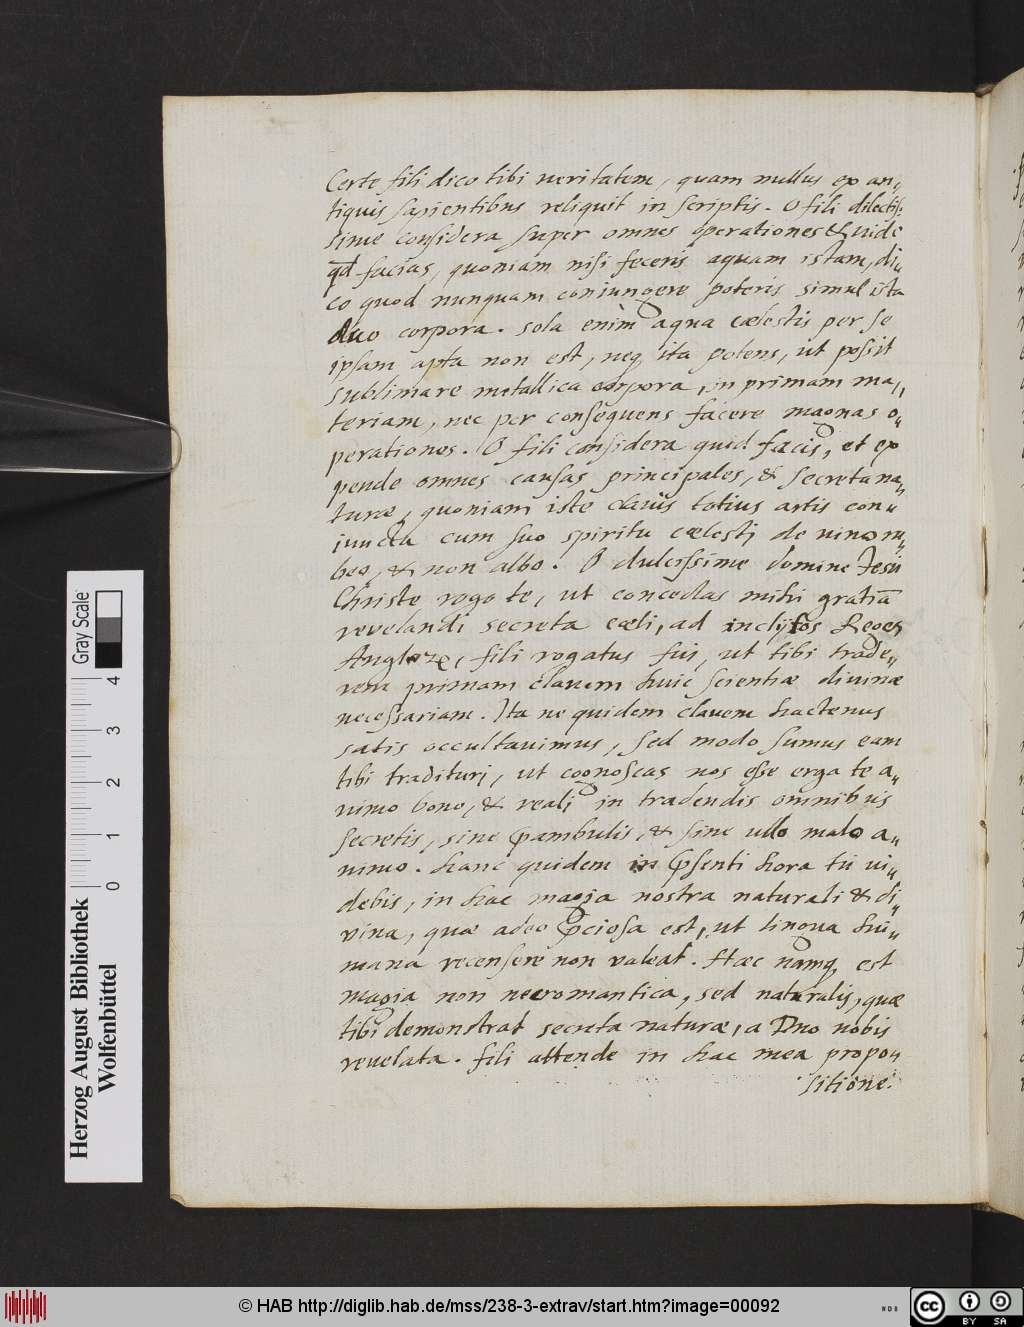 Certe fili dico tibi veritatem, quam nullus ex an„
tiquis sapientibus reliquit in scriptis. O fili dilectis:
sime considera super omnes operationes & vide
qd facias, quoniam nisi feceris aquam istam, di„
co quod nunquam coniungere poteris simul ista
duo corpora. Sola enim aqua cælestis per se
ipsam apta non est, neq ita potens, ut possit
sublimare metallica corpora, in primam ma„
teriam, nec per consequens facere magnas o„
perationes. O fili considera quid facis, et ex
pende omnes causas principales, & secreta na„
turæ, quoniam iste clavis totius artis con„
iuncta cum suo spiritu cælesti de vino ru„
beo, & non albo. O dulcissime domine Jesu
Christe rogo te, ut concedas mihi gratiā
revelandi secreta cæli, ad inclytos Reges
Angloręę, fili rogatus fui, ut tibi trade„
rem primam clavem huic scientiæ divinæ
necessariam. Ita ne quidem clavem hactenus
satis occultavimus, sed modo sumus eam
tibi tradituri, ut cognoscas nos esse erga te a„
nimo bono, & reali in tradendis omnibus
secretis, sine pambulis, & sine ullo malo a„
nimo. hanc quidem in psenti hora tu vi„
debis, in hac magia nostra naturali & di„
vina, quæ adeo pciosa est, ut lingua hu„
mana recensere non valeat. Hæc namq est
magia non necromantica, sed naturalis, quæ
tibi demonstrat secreta naturæ, a Dno nobis
revelata. fili attende in hac mea propo„
sitione.
Gray Scale
0 1 2 3 4
Herzog August Bibliothek
Wolfenbüttel
© HAB http://diglib.hab.de/mss/238-3-extrav/start.htm?image=00092
cc BY SA